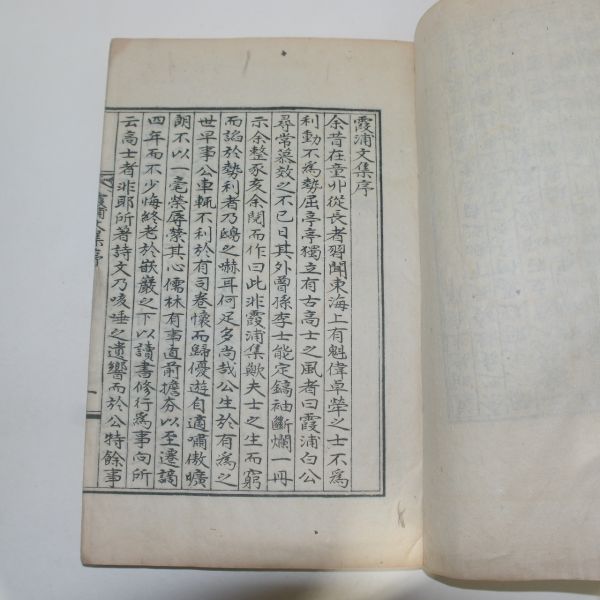 霞浦文集序
余昔在童丱從長者習聞東海上有魁偉卓犖之士不爲
利動不爲勢屈亭亭獨立有古高士之風者曰霞浦白公
尋常慕效之不已日其外曾孫李士能定鎬袖斷爛一冊
示余整豕亥余閱而作曰此非霞浦集歟夫士之生而窮
而諂於勢利者乃鴟之嚇耳何足多尚哉公生於有爲之
世早事公車輒不利於有司卷懷而歸優遊自適嘯傲曠
朗不以一毫榮辱縈其心儒林有事直前擔夯以至遷謫
四年而不少悔終老於嵌巖之下以讀書修行爲事向所
云高士者非耶所著詩文乃唆唾之遺響而於公特餘事
霞浦文集序
一